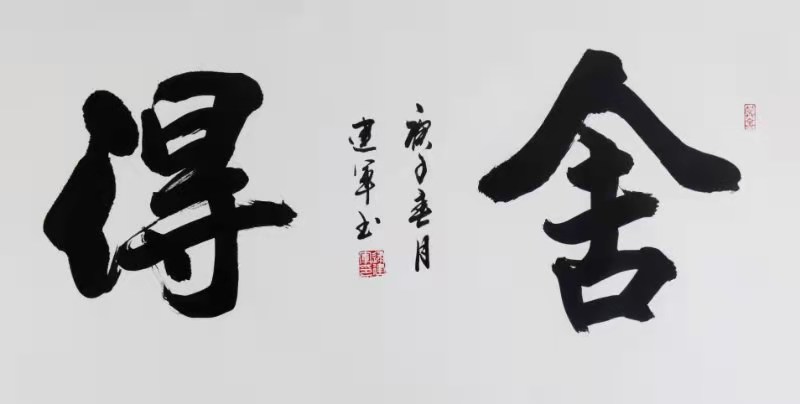 舍
得
庚子春月
建军书